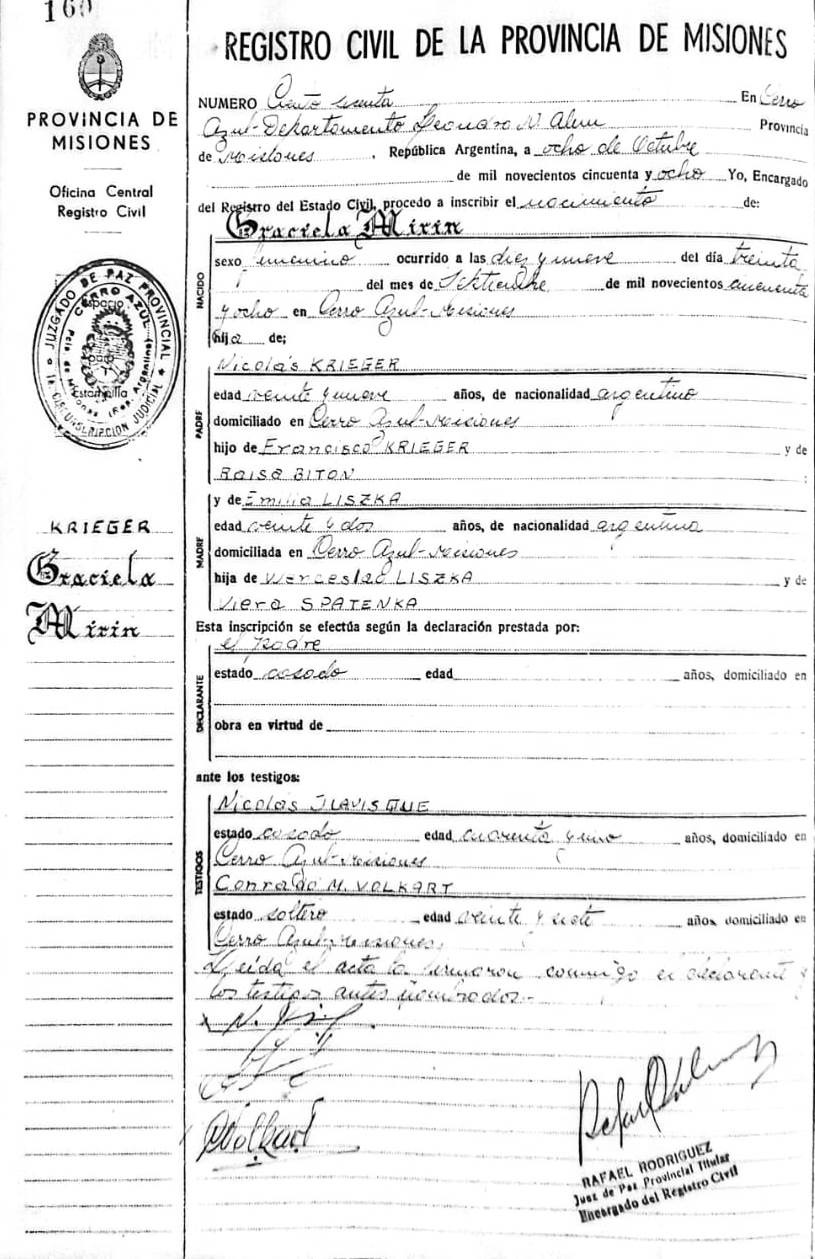 160
PROVINCIA DE
MISIONES
Oficina Central
Registro Civil
JUZGADO DE PAZ PROVINCIAL
CERRO AZUL
espacio
para
Estampilla
CIRCUNSCRIPCION JUDICIAL
KRIEGER
Graciela
Mirin
REGISTRO CIVIL DE LA PROVINCIA DE MISIONES
NUMERO Ciento sesenta En Cerro
Azul-Departamento Leandro N. Alem Provincia
de Misiones, República Argentina, a ocho de Octubre
de mil novecientos cincuenta y ocho Yo, Encargado
del Registro del Estado Civil, procedo a inscribir el nacimiento de:
Graciela Mirin
NACIDO
sexo femenino ocurrido a las diez y nueve del día treinta
del mes de Septiembre de mil novecientos cincuenta
y ocho en Cerro Azul-Misiones
hija de;
PADRE
Nicolás KRIEGER
edad veinte y nueve años, de nacionalidad argentino
domiciliado en Cerro Azul-Misiones
hijo de Francisco KRIEGER y de
Raisa BITON
MADRE
y de Emilia LISZKA
edad veinte y dos años, de nacionalidad argentina
domiciliada en Cerro Azul-Misiones
hija de Werceslao LISZKA y de
Viera SPATENKA
Esta inscripción se efectúa según la declaración prestada por:
DECLARANTE
el padre
estado casado edad años, domiciliado en
obra en virtud de
ante los testigos:
TESTIGOS
Nicolás
estado casado edad cuarenta y uno años, domiciliado en
Cerro Azul-Misiones
Conrado M. VOLKART
estado soltero edad veinte y siete años, domiciliado en
Cerro Azul-Misiones.
Leída el acta la firmaron conmigo el declarante y
los testigos antes nombrados.-
Volkart
RAFAEL RODRIGUEZ
Juez de Paz Provincial Titular
Encargado del Registro Civil